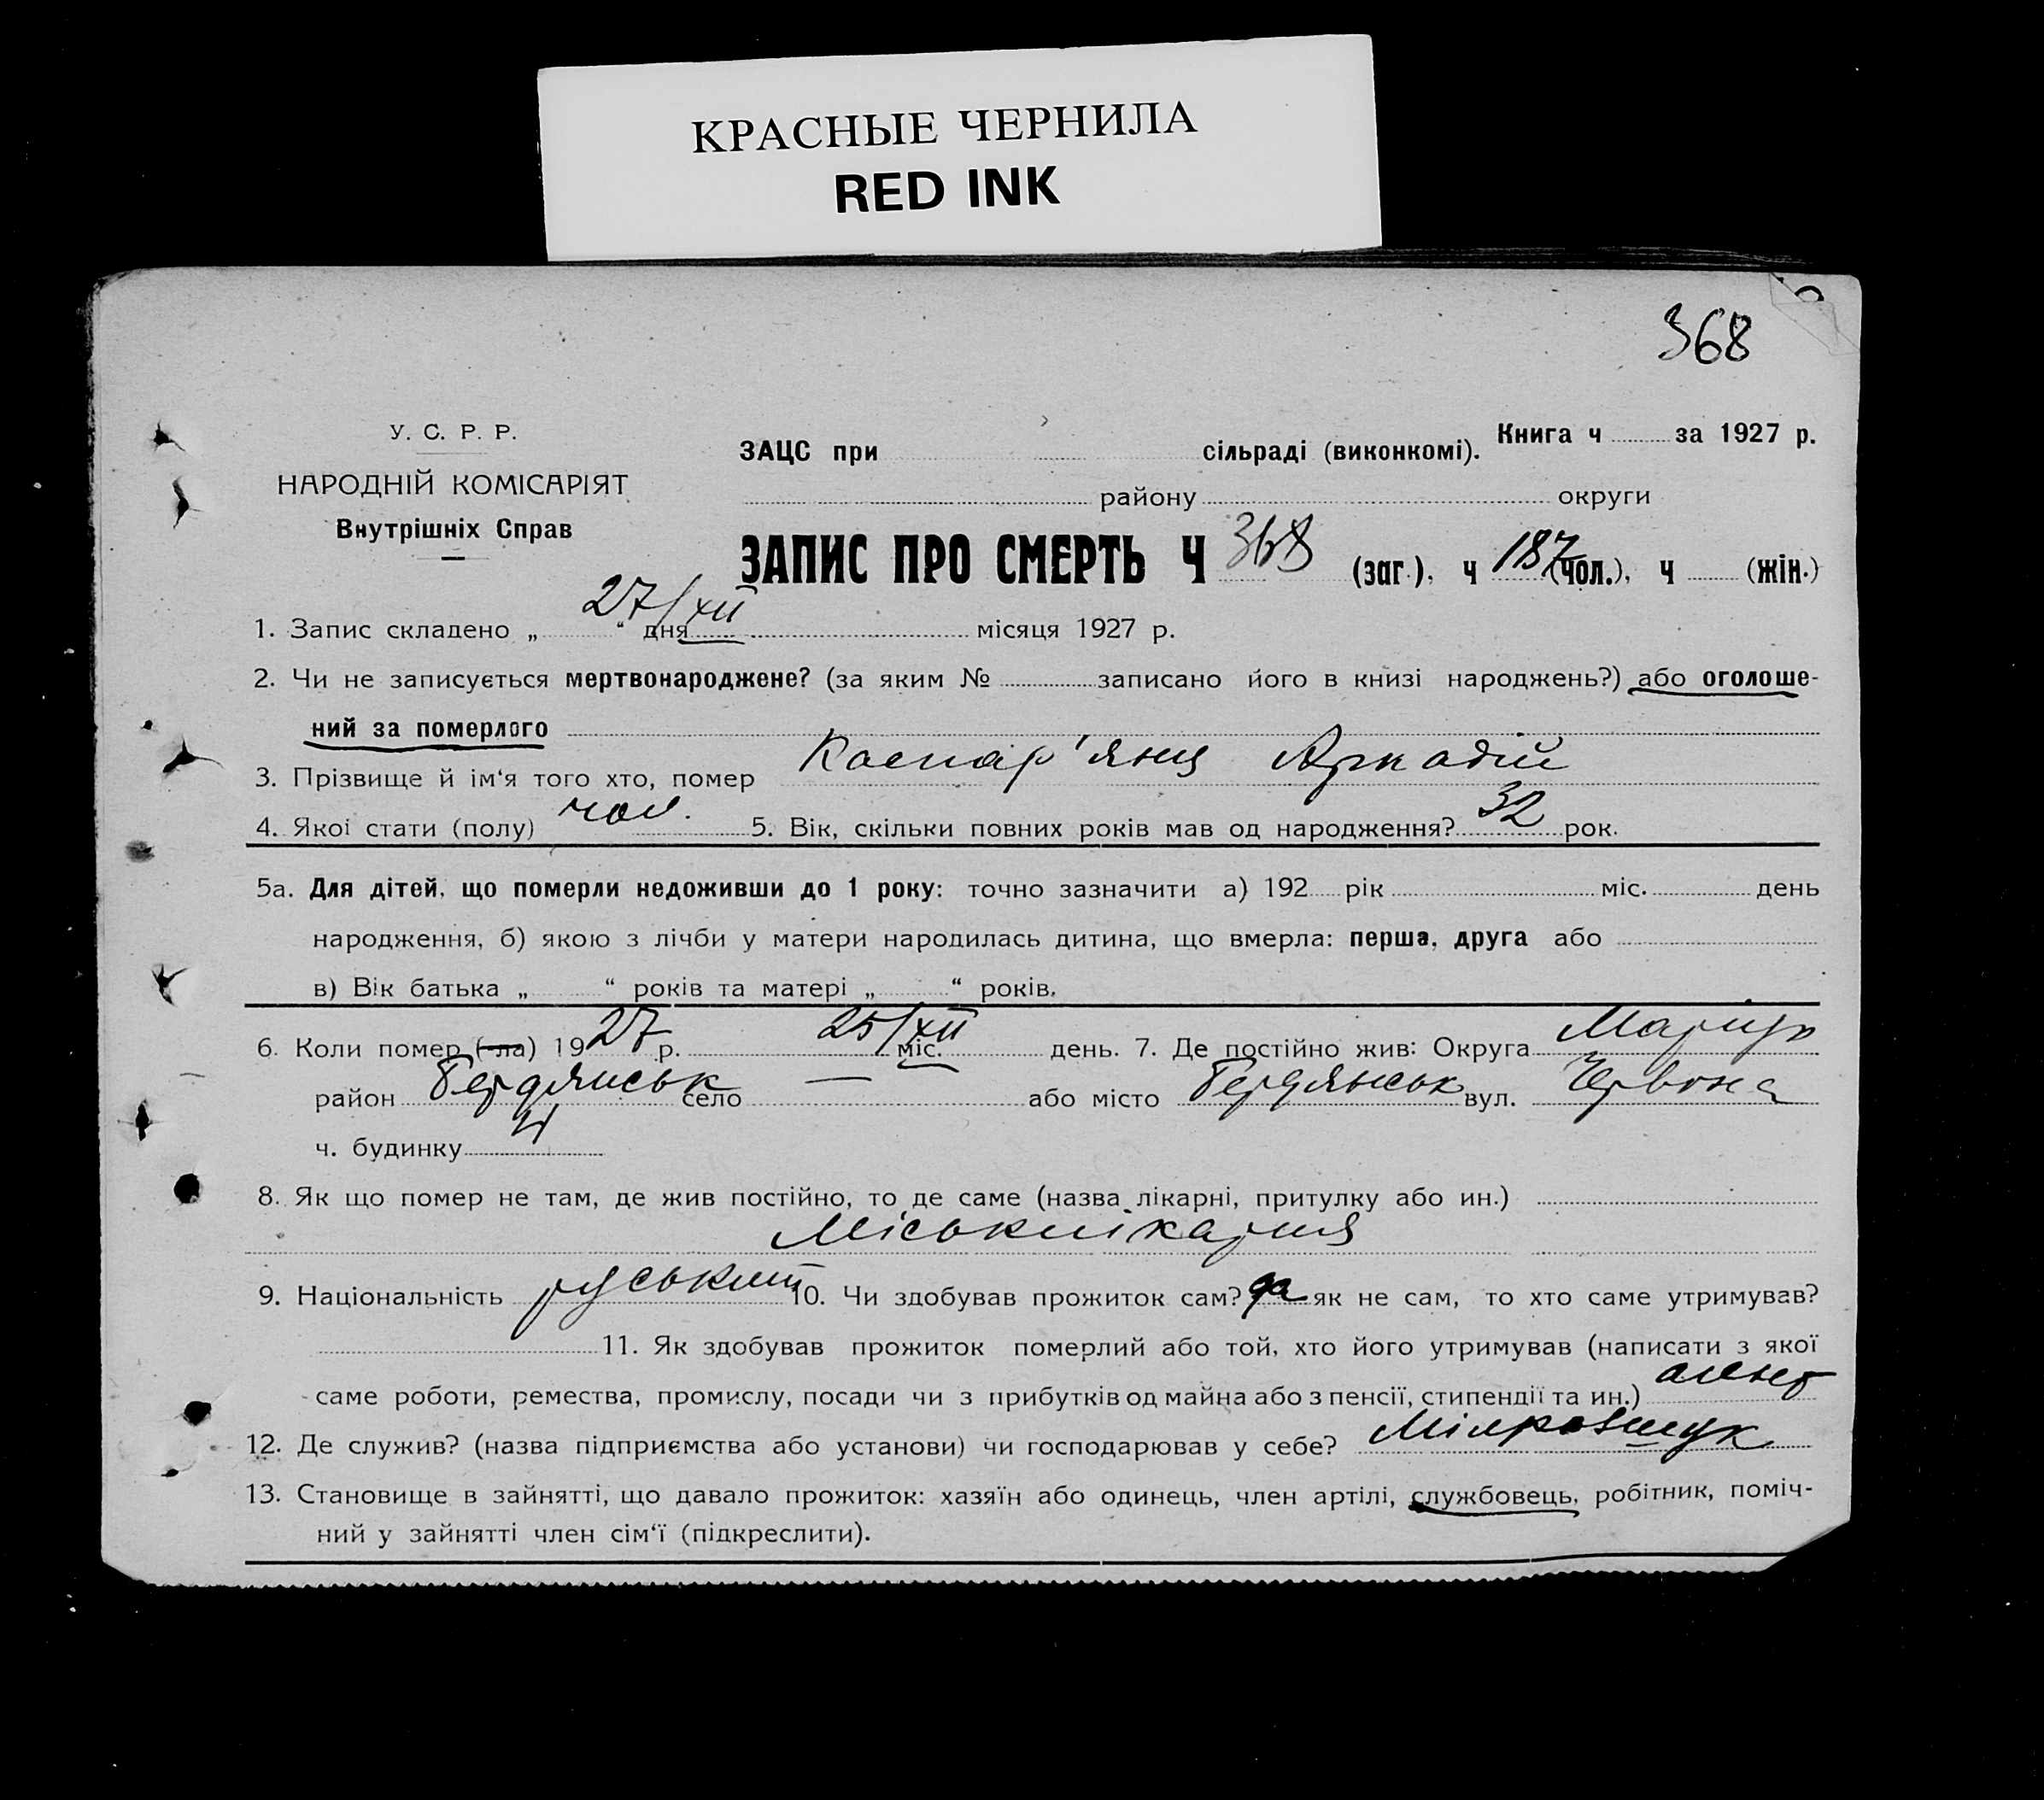 КРАСНЫЕ ЧЕРНИЛА
RED INK
368
У. С. Р. Р.
НАРОДНІЙ КОМІСАРІЯТ
Внутрішніх Справ
ЗАЦС при сільраді (виконкомі). Книга ч за 1927 р.
району округи
ЗАПИС ПРО СМЕРТЬ Ч 368 (заг.), ч 187 (чол.), ч (жін.)
1. Запис складено „ 27/XII “ дня місяця 1927 р.
2. Чи не записується мертвонароджене? (за яким № записано його в книзі народжень?) або оголоше-
ний за померлого
3. Прізвище й ім‘я того хто, помер Каспар'янц Аркадій
4. Якої стати (полу) чол. 5. Вік, скільки повних років мав од народження? 32 рок.
5а. Для дітей, що померли недоживши до 1 року: точно зазначити а) 192 рік міс. день
народження, б) якою з лічби у матери народилась дитина, що вмерла: перша, друга або
в) Вік батька „ “ років та матері „ “ років.
6. Коли помер (-ла) 1927 р. 25/XII міс. день. 7. Де постійно жив: Округа Маріуп
район Бердянськ село — або місто Бердянськ вул. Червона
ч. будинку 4
8. Як що помер не там, де жив постійно, то де саме (назва лікарні, притулку або ин.)
Міськлікарня
9. Національність руський 10. Чи здобував прожиток сам? да як не сам, то хто саме утримував?
11. Як здобував прожиток померлий або той, хто його утримував (написати з якої
саме роботи, ремества, промислу, посади чи з прибутків од майна або з пенсії, стипендії та ин.) агент
12. Де служив? (назва підприємства або установи) чи господарював у себе?
13. Становище в зайнятті, що давало прожиток: хазяїн або одинець, член артілі, службовець, робітник, поміч-
ний у зайнятті член сім‘ї (підкреслити).